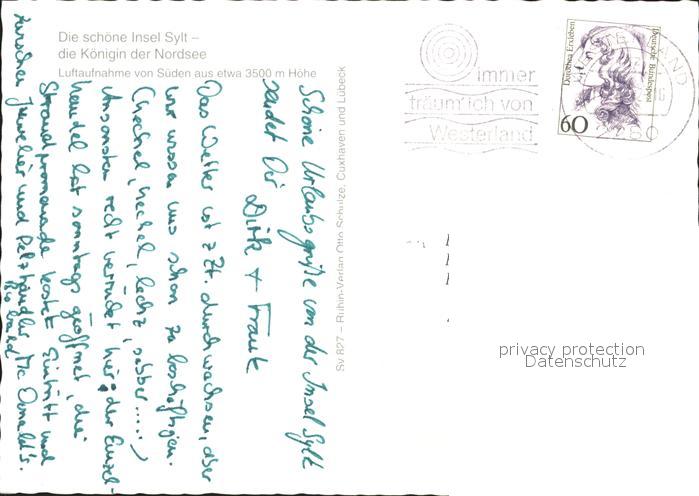 Die schöne Insel Sylt –
die Königin der Nordsee
Luftaufnahme von Süden aus etwa 3500 m Höhe
Schöne Urlaubsgrüße von der Insel Sylt
sendet Dir
Dirk + Frauk
Das Wetter ist z.Zt. durchwachsen, aber
wir wissen uns schon zu beschäftigen.
(hechel, hechel, lechz, sabber.....)
Ansonsten recht verrückt hier: der Einzel-
handel hat sonntags geöffnet, die
Strandpromenade kostet Eintritt und
zwischen Juwelier und Pelzhändler Mc Donald's.
Sv 827 – Rubin-Verlag Otto Schulze, Cuxhaven und Lübeck
immer
träum' ich von
Westerland
Dorothea Erxleben
Deutsche Bundespost
60
2280
privacy protection
Datenschutz